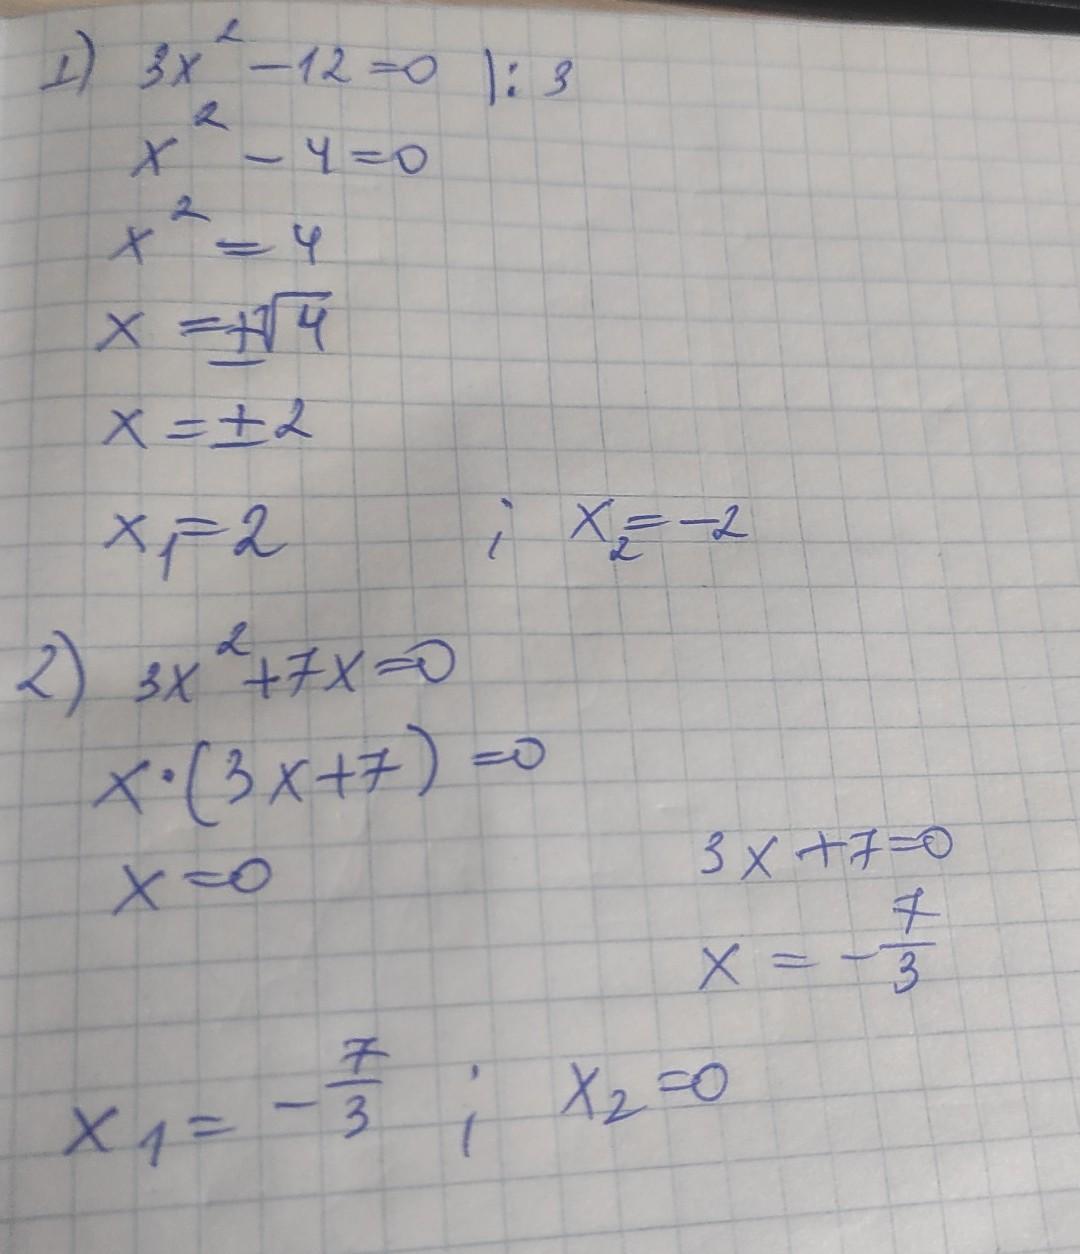 1) 3x² - 12 = 0 |: 3
x² - 4 = 0
x² = 4
x = ±√4
x = ±2
x₁ = 2 ; x₂ = -2
2) 3x² + 7x = 0
x · (3x + 7) = 0
x = 0 3x + 7 = 0
x = -7/3
x₁ = -7/3 ; x₂ = 0